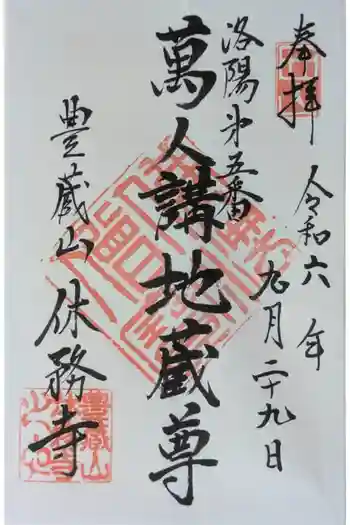 奉拝
令和六年
九月二十九日
洛陽第五番
萬人講地蔵尊
豊蔵山
休務寺